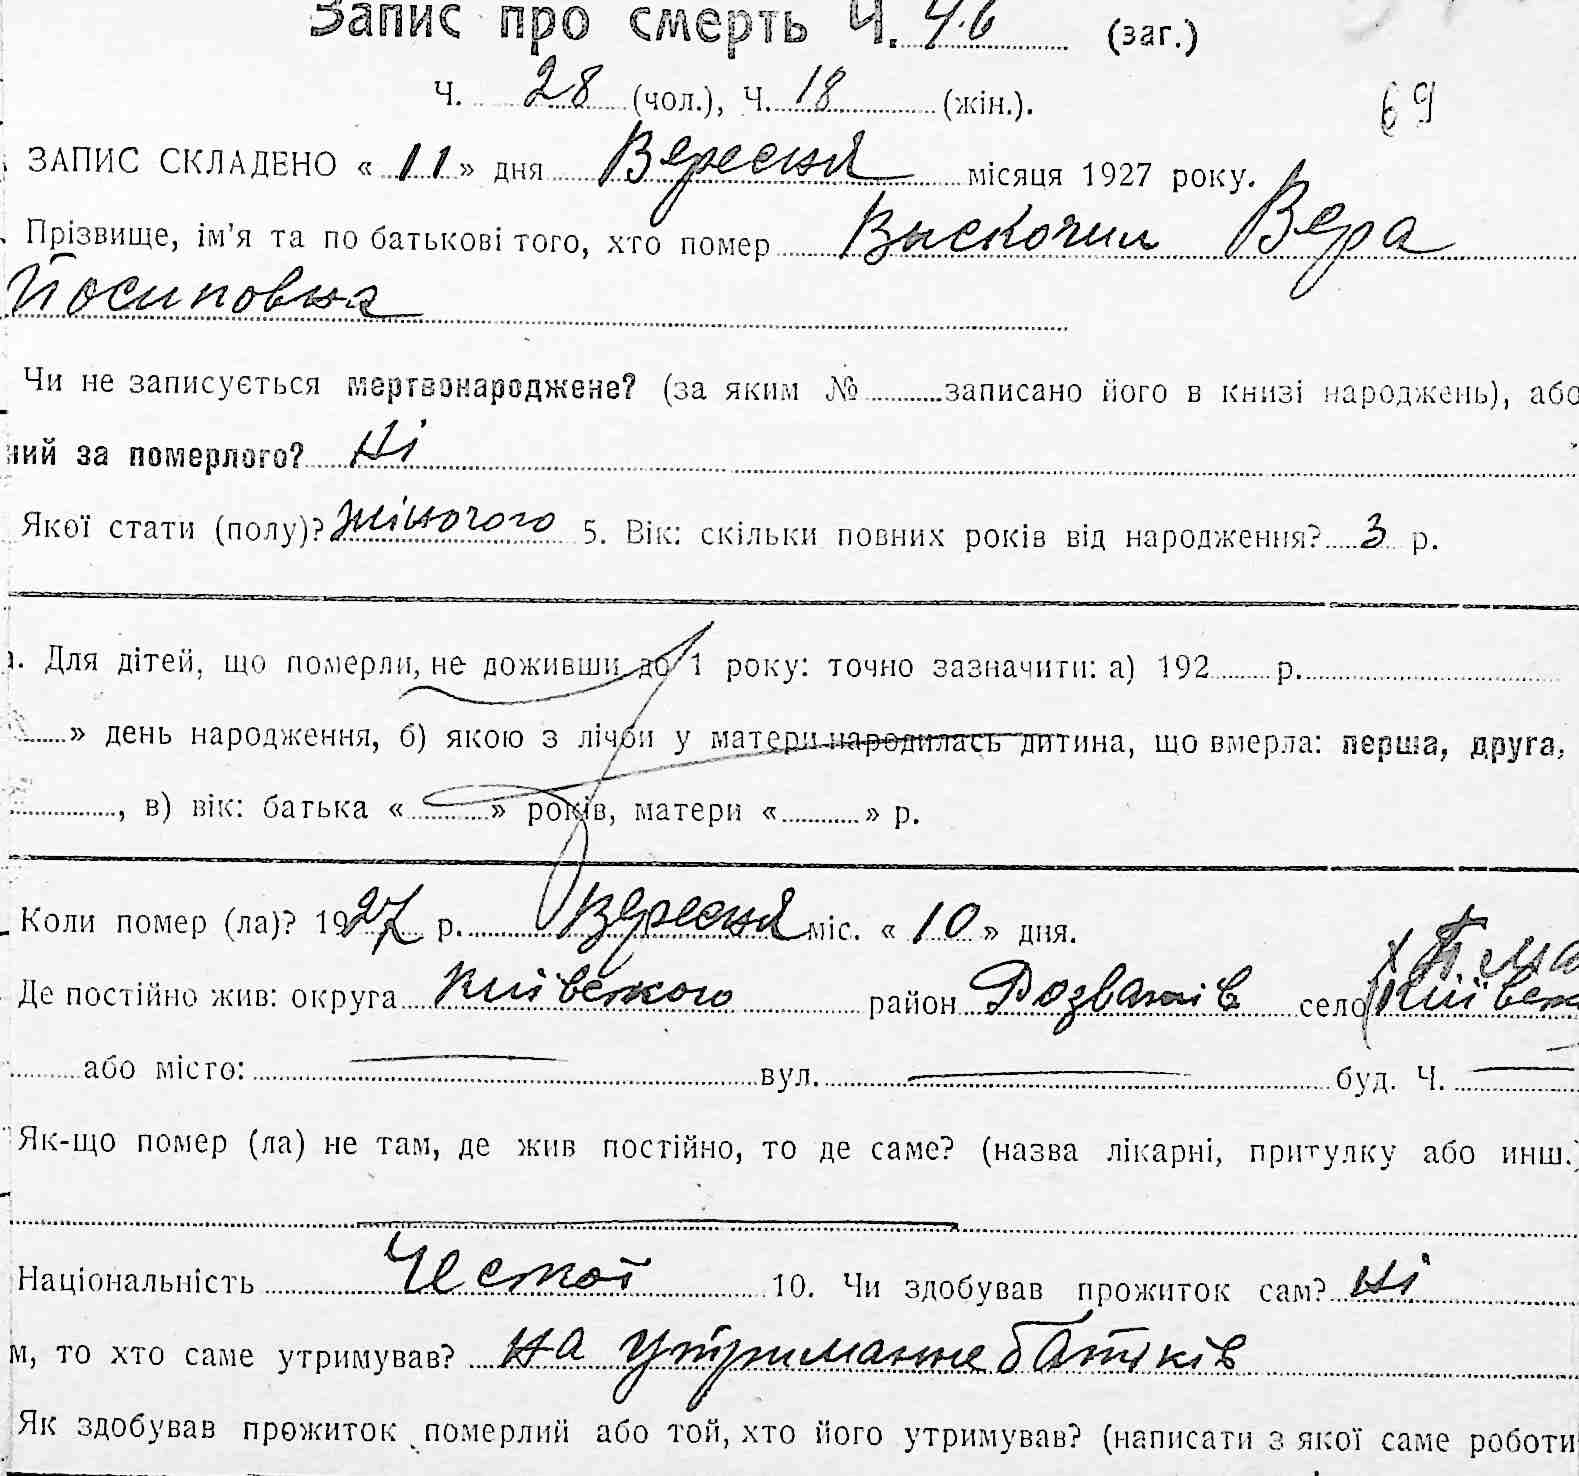 Запис про смерть Ч. 46 (заг.)
Ч. 28 (чол.), Ч. 18 (жін.).
69
ЗАПИС СКЛАДЕНО « 11 » дня Вересня місяця 1927 року.
Прізвище, ім'я та по батькові того, хто помер Выскочил Вера
Йосиповна
Чи не записується мертвонароджене? (за яким № записано його в книзі народжень), або
ний за померлого? Ні
Якої стати (полу)? жіночого 5. Вік: скільки повних років від народження? 3 р.
Для дітей, що померли, не доживши до 1 року: точно зазначити: а) 192 р.
» день народження, б) якою з лічби у матери народилась дитина, що вмерла: перша, друга,
, в) вік: батька « » років, матери « » р.
Коли помер (ла)? 1927 р. Вересня міс. « 10 » дня.
Де постійно жив: округа Київского район Розважів село
або місто: вул. буд. Ч.
Як-що помер (ла) не там, де жив постійно, то де саме? (назва лікарні, притулку або инш.)
Національність Ческої 10. Чи здобував прожиток сам? ні
м, то хто саме утримував? на утриманне батьків
Як здобував прожиток померлий або той, хто його утримував? (написати з якої саме роботи